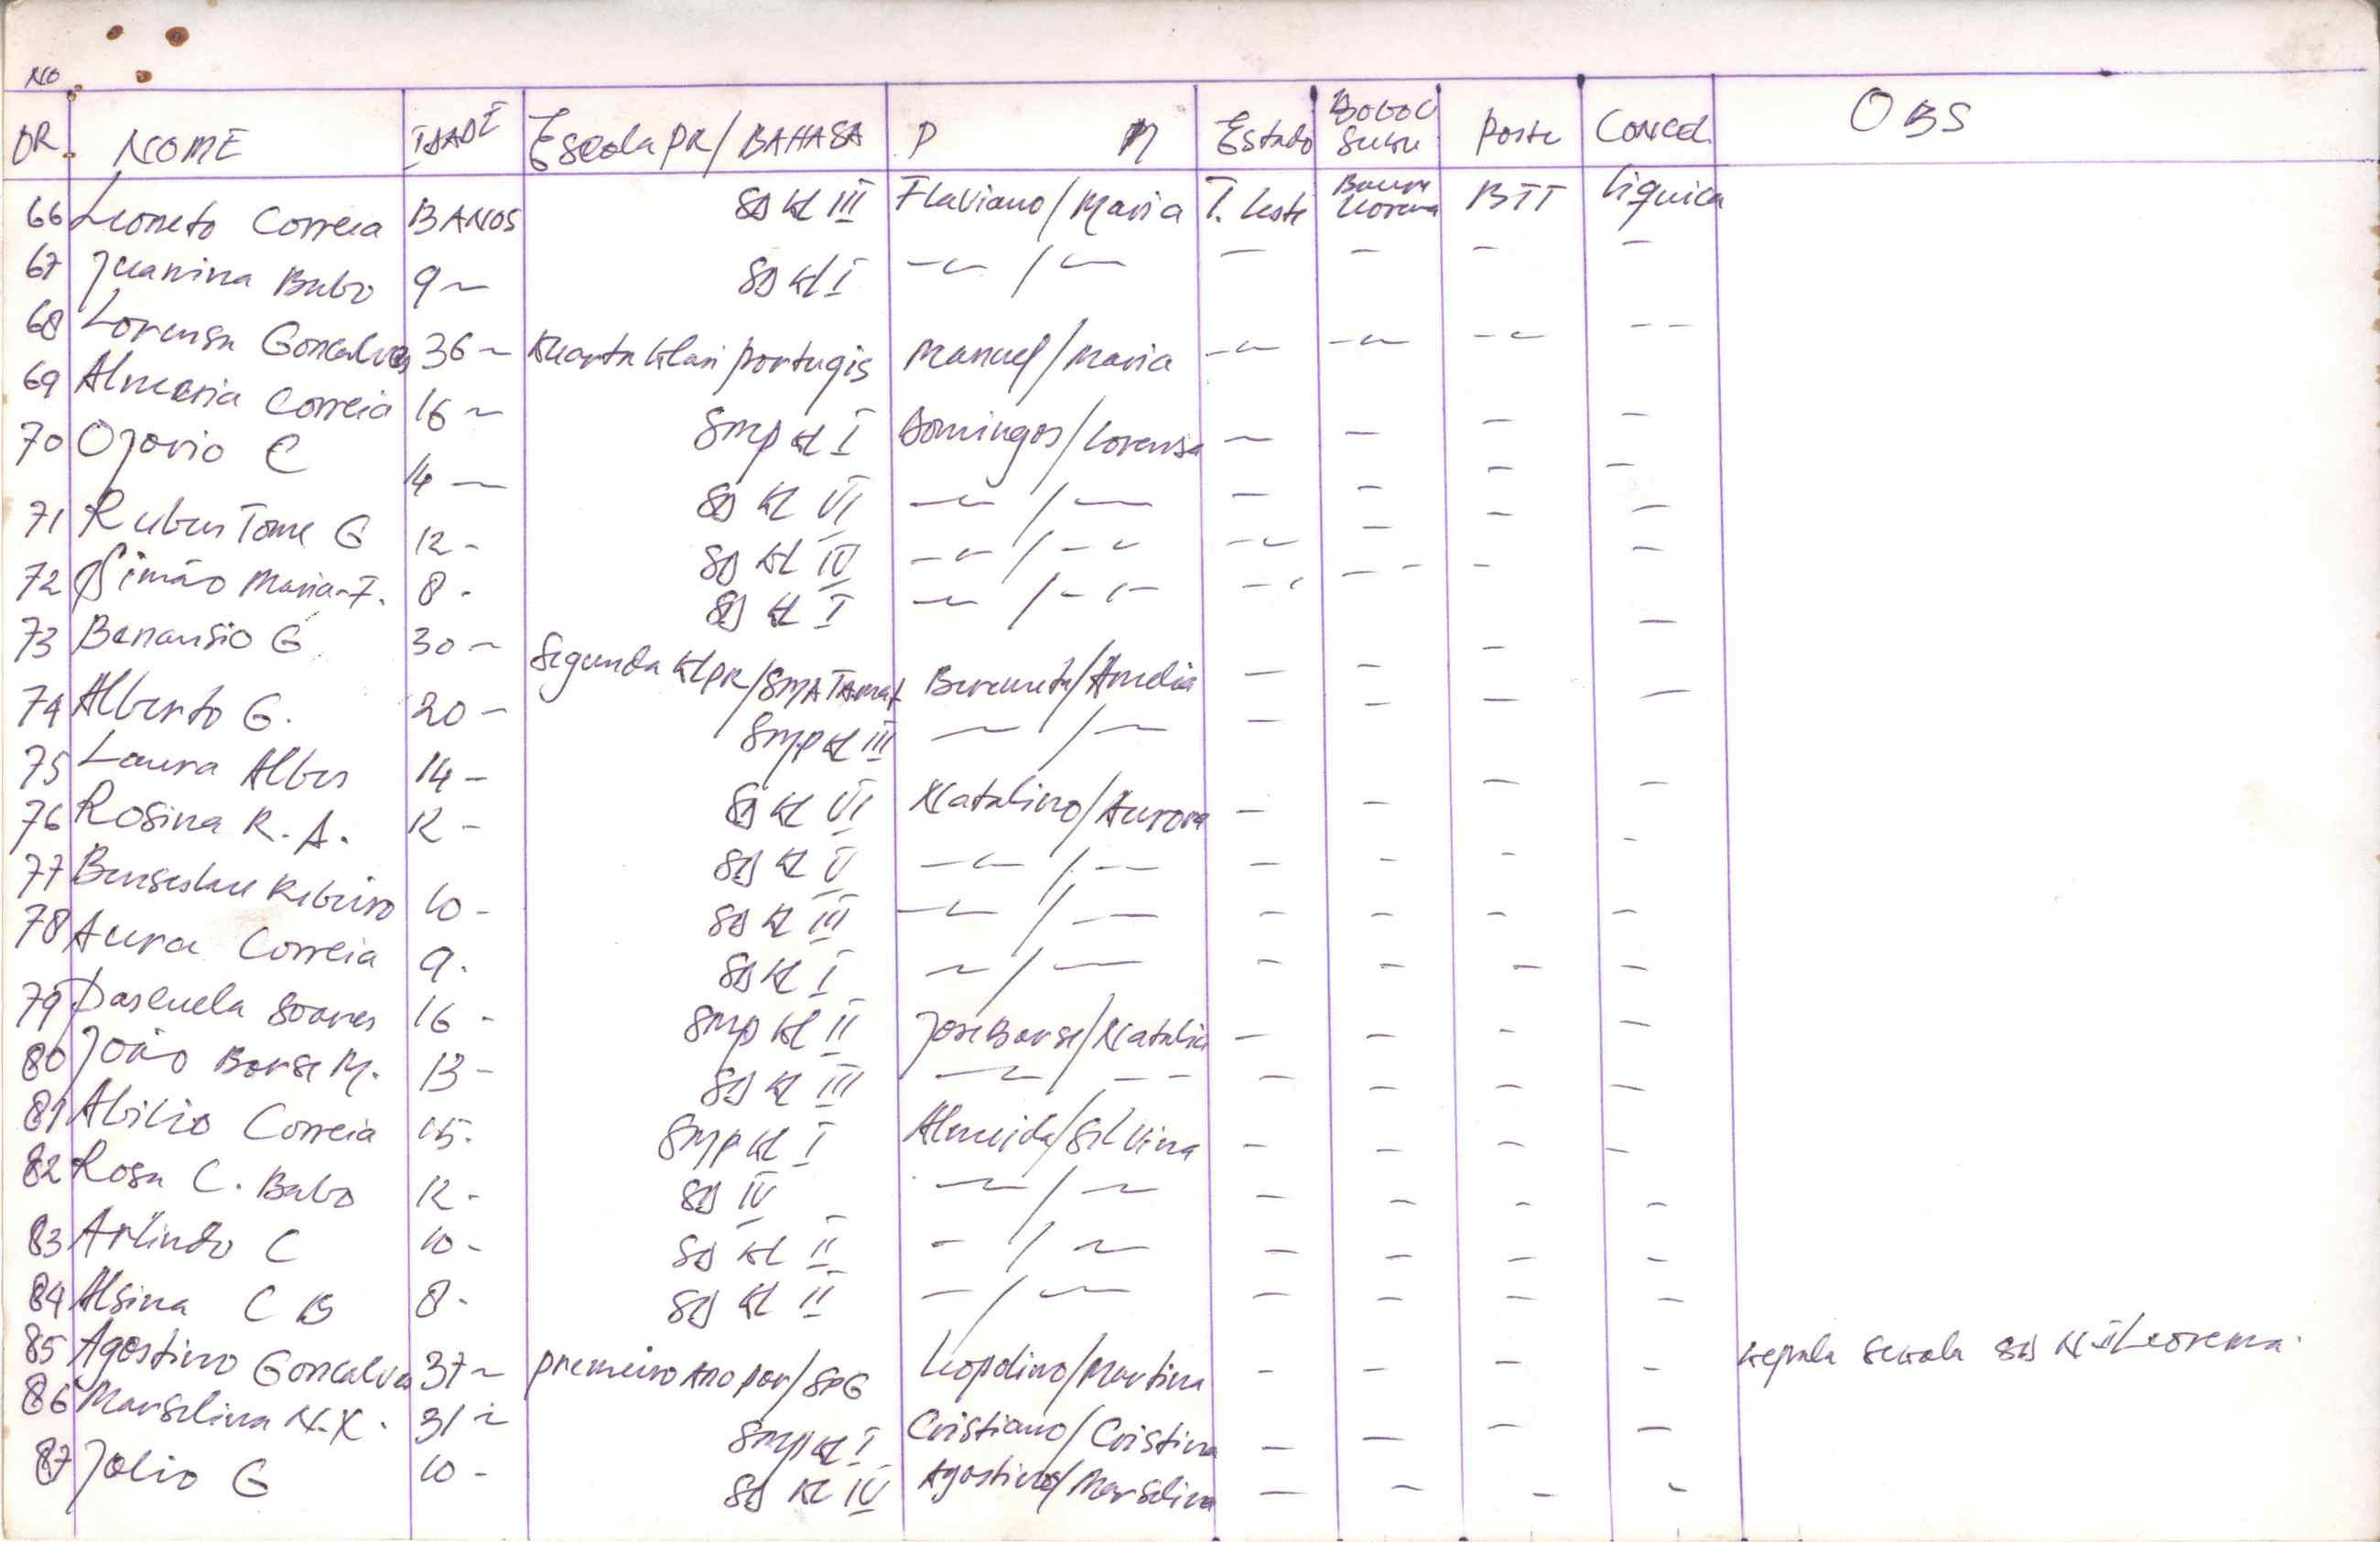 NO
OR. NOME IDADE Escola PR/ BAHASA P M Estado Suku Posto Concel. OBS
66 Leoneto Correia 13 ANOS SD Kl III Flaviano/Maria T. Leste BTT Liquica
67 Juanina Babo 9 ~ SD Kl I — / — — — — —
68 Lorensa Goncalves 36 ~ Kuarta Klasi portugis Manuel/Maria — — — —
69 Correia 16 ~ SMP Kl I Domingos/Lorensa — — — —
70 Ojorio C 14 — SD Kl VI — / — — — — —
71 Ruben Tome G 12 - SD Kl IV — / — — — — —
72 Simão Maria. F. 8 - SD Kl I — / — — — — —
73 Benansio G 30 ~ Segunda Kl PR/SMA Tamat /Amelia — — — —
74 Alberto G. 20 - SMP Kl III — / — — — — —
75 Laura Alves 14 - SD Kl VI Natalino/Aurora — — — —
76 Rosina R. A. 12 - SD Kl V — / — — — — —
77 Ribeiro 10 - SD Kl III — / — — — — —
78 Aura Correia 9. SD Kl I — / — — — — —
79 Pascuela Soares 16 - SMP Kl II Jose Borse/Natalia — — — —
80 João Borse M. 13 - SD Kl III — — — — — —
81 Abilio Correia 15. SMP Kl I Almeida/Silvina — — — —
82 Rosa C. Babo 12 - SD IV — / — — — — —
83 Arlindo C 10 - SD Kl II — / — — — — —
84 Alsina C B 8 - SD Kl II — / — — — — —
85 Agostino Goncalves 37 ~ premeiro Ano por/SPG Leopolino/Martina — — — — Kepala Sekola SD N-I Leorema.
86 Marselina N.X. 31 ~ SMP Kl I Cristiano/Cristina — — — —
87 Jolio G 10 - SD Kl IV Agostino/Marselina — — — —